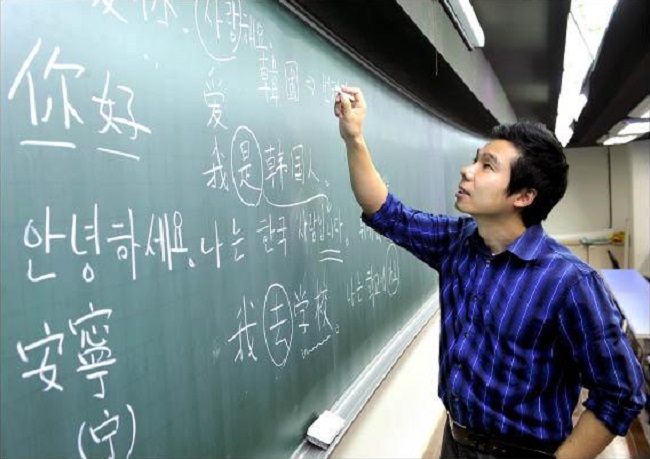 사랑해요.
你好
爱
韓國 ⇒
我是韩国人.
안녕하세요. 나는 한국 사람입니다.
我去学校。
나는 학교에
安寧
(宁)